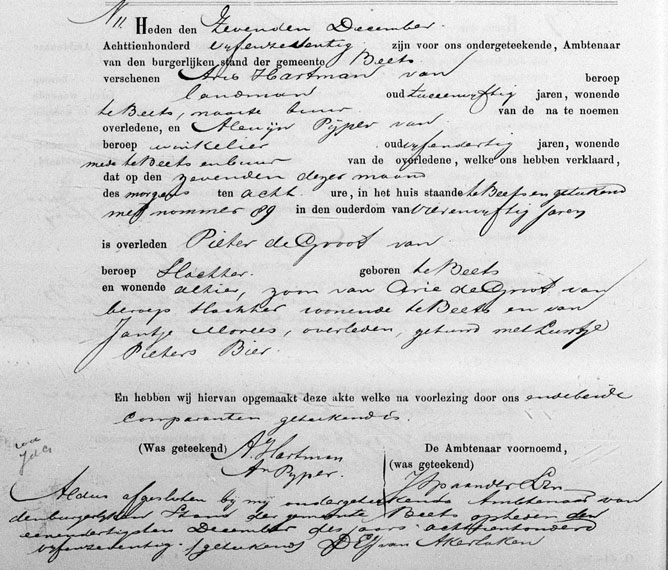 No 11. Heden den Zevenden December
Achttienhonderd vyfenzeventig zijn voor ons ondergeteekende, Ambtenaar
van den burgerlijken stand der gemeente Beets
verschenen Arie Hartman van beroep
landman oud tweeenvyftig jaren, wonende
te Beets, naaste buur van de na te noemen
overledene, en Alewijn Pyper van
beroep winkelier oud vyfendertig jaren, wonende
mede te Beets en buur van de overledene, welke ons hebben verklaard,
dat op den zevenden dezer maand
des morgens ten acht ure, in het huis staande te Beets en getekend
met nommer 89 in den ouderdom van vierenvyftig jaren
is overleden Pieter de Groot van
beroep Slachter geboren te Beets
en wonende aldaar, zoon van Arie de Groot van
beroep Slachter wonende te Beets en van
Jantje Morees, overleden, gehuwd met
Pieters Bier.
En hebben wij hiervan opgemaakt deze akte welke na voorlezing door ons en de beide
comparanten geteekend is.
(Was geteekend) A. Hartman De Ambtenaar voornoemd,
An Pyper. (was geteekend)
J Spaander Czn
Aldus afgesloten by my ondergeteekende Ambtenaar van
den burgelyken Stand der gemeente Beets op heden den
eenendertigsten December des jaars achttienhonderd
vyfenzeventig (getekend) van Akerlaken